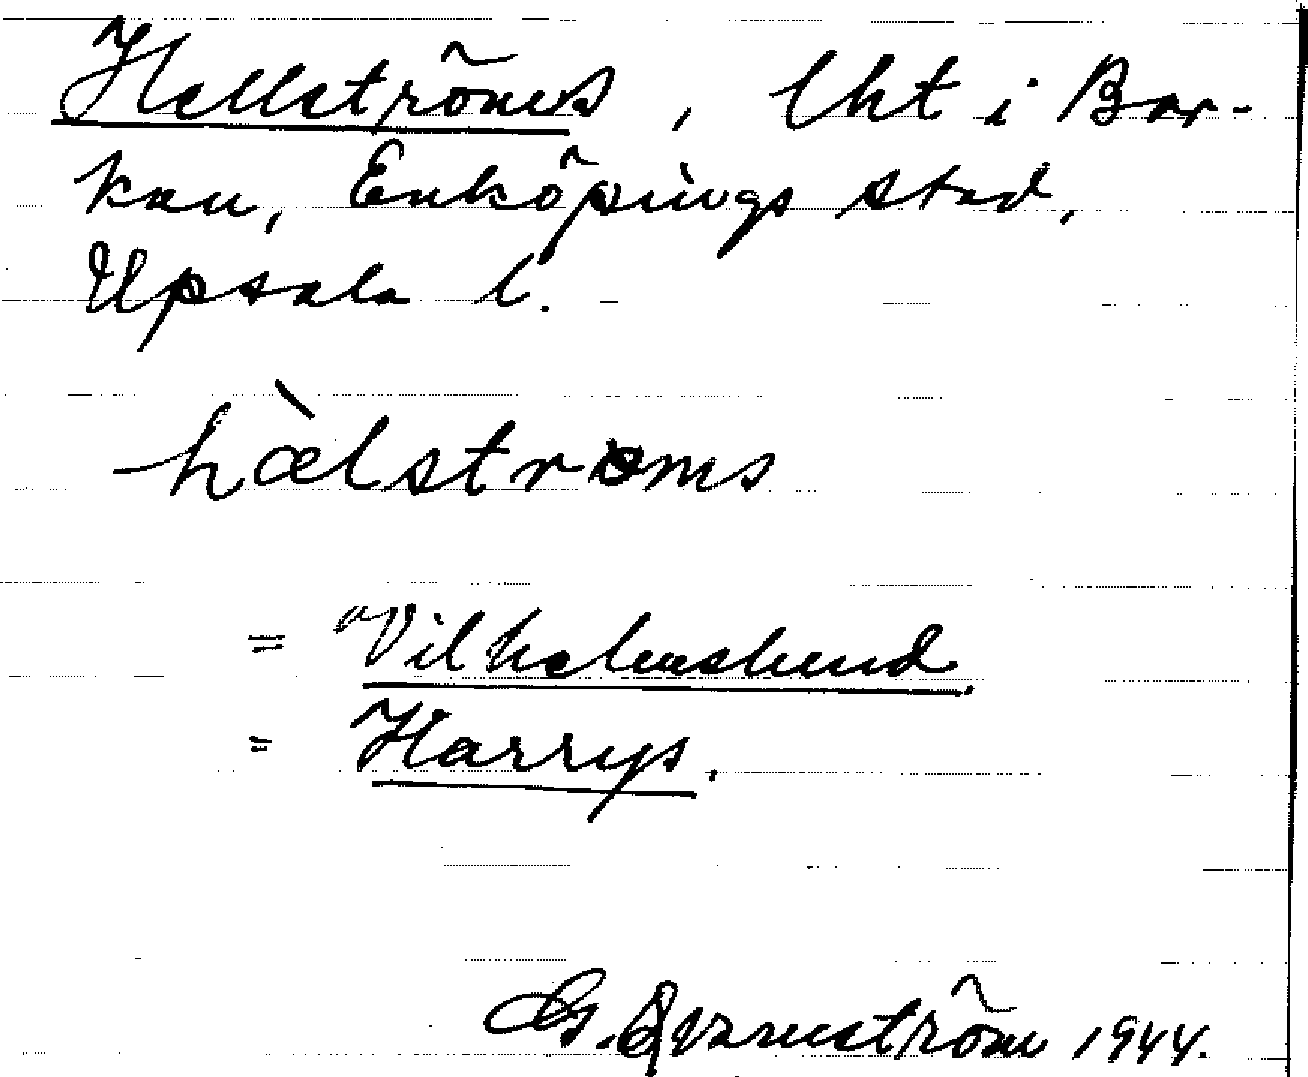 Hellströms, lht i Bor-
kan, Enköpings stad,
Upsala l.
hæ̀lstrøms
= Vilhelmslund.
= Harrys.
G. Qvarnström 1944.